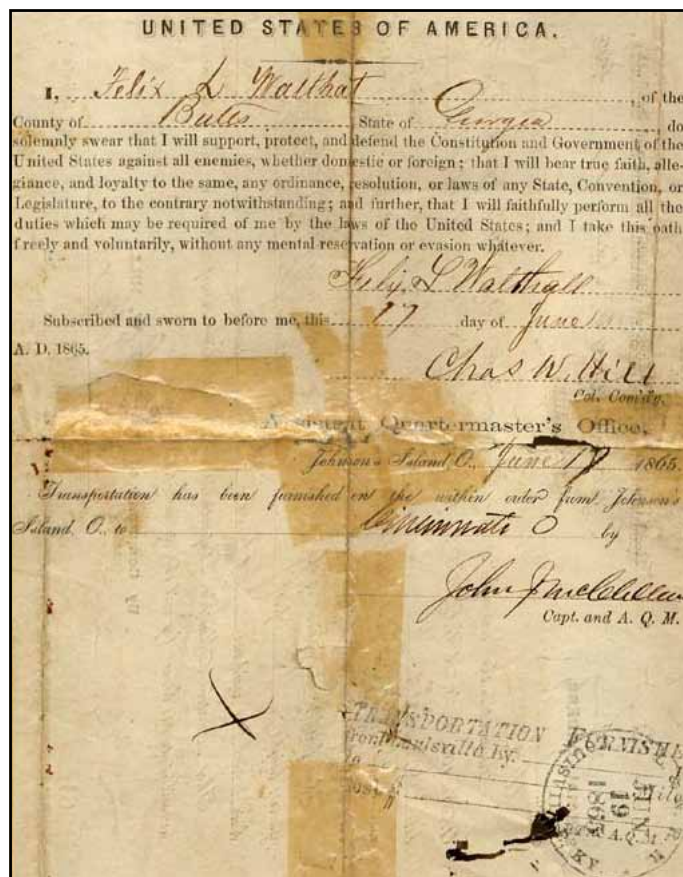 UNITED STATES OF AMERICA.
I, Felix L Walthal, of the
County of Butts State of Georgia, do
solemnly swear that I will support, protect, and defend the Constitution and Government of the
United States against all enemies, whether domestic or foreign; that I will bear true faith, alle-
giance, and loyalty to the same, any ordinance, resolution, or laws of any State, Convention, or
Legislature, to the contrary notwithstanding; and further, that I will faithfully perform all the
duties which may be required of me by the laws of the United States; and I take this oath
freely and voluntarily, without any mental reservation or evasion whatever.
Felix L Walthall
Subscribed and sworn to before me, this 17 day of June
A. D. 1865.
Chas W. Hill
Col. Com'dg.
Quartermaster's Office,
Johnson's Island, O., June 17 1865.
Transportation has been furnished on the within order from Johnson's
Island, O., to Cincinnati O by
John J McClellan
Capt. and A. Q. M.
TRANSPORTATION FURNISHE
from Louisville Ky.
A. Q. M.
KY.